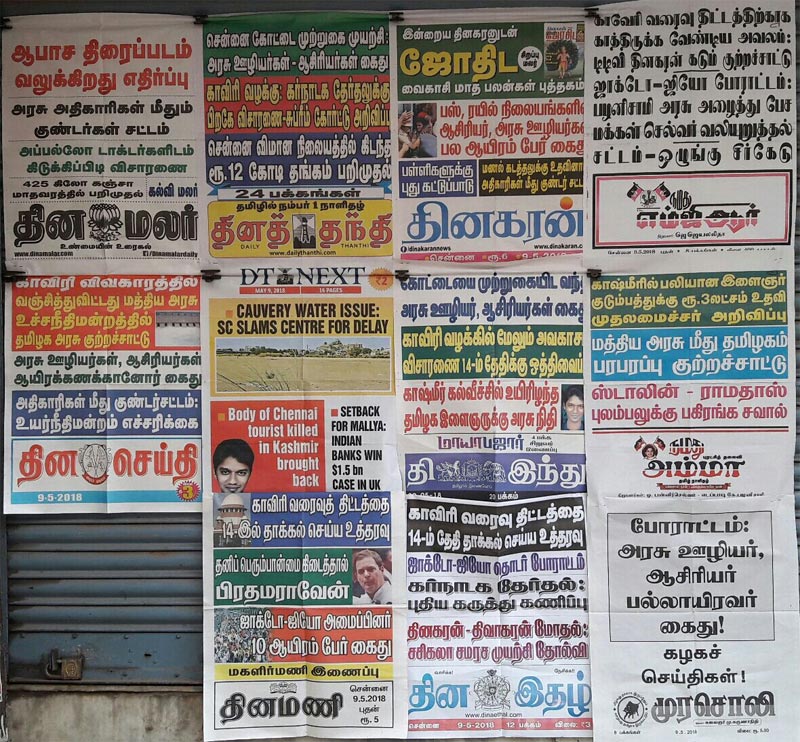 ஆபாச திரைப்படம்
வலுக்கிறது எதிர்ப்பு
அரசு அதிகாரிகள் மீதும்
குண்டர்கள் சட்டம்
அப்பல்லோ டாக்டர்களிடம்
கிடுக்கிப்பிடி விசாரணை
425 கிலோ கஞ்சா
மாதவரத்தில் பறிமுதல் கல்வி மலர்
தின மலர்
உண்மையின் உரைகல்
www.dinamalar.com /Dinamalardaily
சென்னை கோட்டை முற்றுகை முயற்சி:
அரசு ஊழியர்கள் - ஆசிரியர்கள் கைது
காவிரி வழக்கு: கர்நாடக தேர்தலுக்கு
பிறகே விசாரணை-சுப்ரீம் கோர்ட்டு அறிவிப்பு
சென்னை விமான நிலையத்தில் கிடந்த
ரூ.12 கோடி தங்கம் பறிமுதல்
24 பக்கங்கள்
தமிழில் நம்பர் 1 நாளிதழ்
தினத் தந்தி
DAILY THANTHI
www.dailythanthi.com
இன்றைய தினகரனுடன்
ஜோதிட சிறப்பு மலர்
வைகாசி மாத பலன்கள் புத்தகம்
பஸ், ரயில் நிலையங்களில்
ஆசிரியர், அரசு ஊழியர்கள்
பல ஆயிரம் பேர் கைது
பள்ளிகளுக்கு
புது கட்டுப்பாடு
மணல் கடத்தலுக்கு உதவினால்
அதிகாரிகள் மீது குண்டர் சட்டம்
தினகரன்
/dinakarannews www.dinakaran.c
சென்னை ரூ.6 9-5-2018
காவேரி வரைவு திட்டத்திற்காக
காத்திருக்க வேண்டிய அவலம்:
டிடிவி தினகரன் கடும் குற்றச்சாட்டு
ஜாக்டோ-ஜியோ போராட்டம்:
பழனிசாமி அரசு அழைத்து பேச
மக்கள் செல்வர் வலியுறுத்தல்
சட்டம்-ஒழுங்கு சீர்கேடு
எம்ஜிஆர்
காவிரி விவகாரத்தில்
வஞ்சித்துவிட்டது மத்திய அரசு
உச்சநீதிமன்றத்தில்
தமிழக அரசு குற்றச்சாட்டு
அரசு ஊழியர்கள், ஆசிரியர்கள்
ஆயிரக்கணக்கானோர் கைது
அதிகாரிகள் மீது குண்டர்சட்டம்:
உயர்நீதிமன்றம் எச்சரிக்கை
தின செய்தி
9-5-2018 3
DT NEXT ₹2
MAY 9, 2018 16 PAGES
CAUVERY WATER ISSUE:
SC SLAMS CENTRE FOR DELAY
Body of Chennai
tourist killed
in Kashmir
brought
back
SETBACK
FOR MALLYA:
INDIAN
BANKS WIN
$1.5 bn
CASE IN UK
கோட்டையை முற்றுகையிட வந்த
அரசு ஊழியர், ஆசிரியர்கள் கைது
காவிரி வழக்கில் மேலும் அவகாசம்
விசாரணை 14-ம் தேதிக்கு ஒத்திவைப்பு
காஷ்மீர் கல்வீச்சில் உயிரிழந்த
தமிழக இளைஞருக்கு அரசு நிதி
மாயாபஜார்
தி இந்து
20 பக்கம்
காஷ்மீரில் பலியான இளைஞர்
குடும்பத்துக்கு ரூ.3லட்சம் உதவி
முதலமைச்சர் அறிவிப்பு
மத்திய அரசு மீது தமிழகம்
பரபரப்பு குற்றச்சாட்டு
ஸ்டாலின் - ராமதாஸ்
புலம்பலுக்கு பகிரங்க சவால்
நமது
புரட்சித் தலைவி
அம்மா
காவிரி வரைவுத் திட்டத்தை
14-இல் தாக்கல் செய்ய உத்தரவு
தனிப் பெரும்பான்மை கிடைத்தால்
பிரதமராவேன்
ஜாக்டோ-ஜியோ அமைப்பினர்
10 ஆயிரம் பேர் கைது
மகளிர்மணி இணைப்பு
தினமணி
சென்னை
9.5.2018
புதன்
ரூ. 5
காவிரி வரைவு திட்டத்தை
14-ம் தேதி தாக்கல் செய்ய உத்தரவு
ஜாக்டோ-ஜியோ தொடர் போராட்டம்
கர்நாடக தேர்தல்:
புதிய கருத்து கணிப்பு
தினகரன் -திவாகரன் மோதல்:
சசிகலா சமரச முயற்சி தோல்வி
தின இதழ்
சென்னை 9-5-2018 12 பக்கம் விலை: ₹3
போராட்டம்:
அரசு ஊழியர்,
ஆசிரியர்
பல்லாயிரவர்
கைது!
கழகச்
செய்திகள்!
முரசொலி